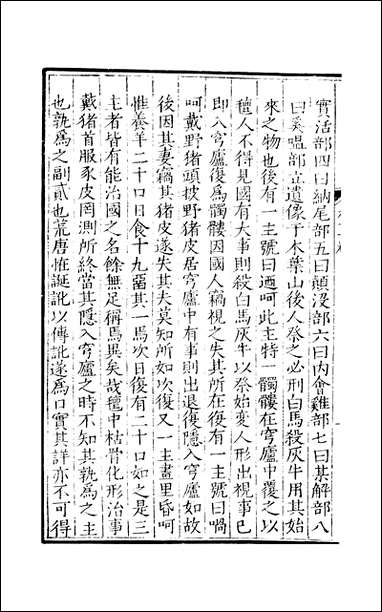 實活部四曰納尾部五曰頻没部六曰内會雞部七曰某解部八
曰奚嗢部立遺像于木葉山後人祭之必刑白馬殺灰牛用其始
來之物也後有一主號曰迺呵此主特一髑髏在穹廬中覆之以
氊人不得見國有大事則殺白馬灰牛以祭始變人形出視事已
即入穹廬復為髑髏因國人竊視之失其所在復有一主號曰喎
呵戴野猪頭披野猪皮居穹廬中有事則出退復隱入穹廬如故
後因其妻竊其猪皮遂失其夫莫知所如次復又一主晝里昏呵
惟養羊二十口日食十九留其一焉次日復有二十口如之是三
主者皆有能治國之名餘無足稱焉異矣哉氊中枯骨化形治事
戴猪首服豕皮罔測所終當其隱入穹廬之時不知其孰為之主
也孰為之副貳也荒唐恠誕訛以傳訛遂為口實其詳亦不可得